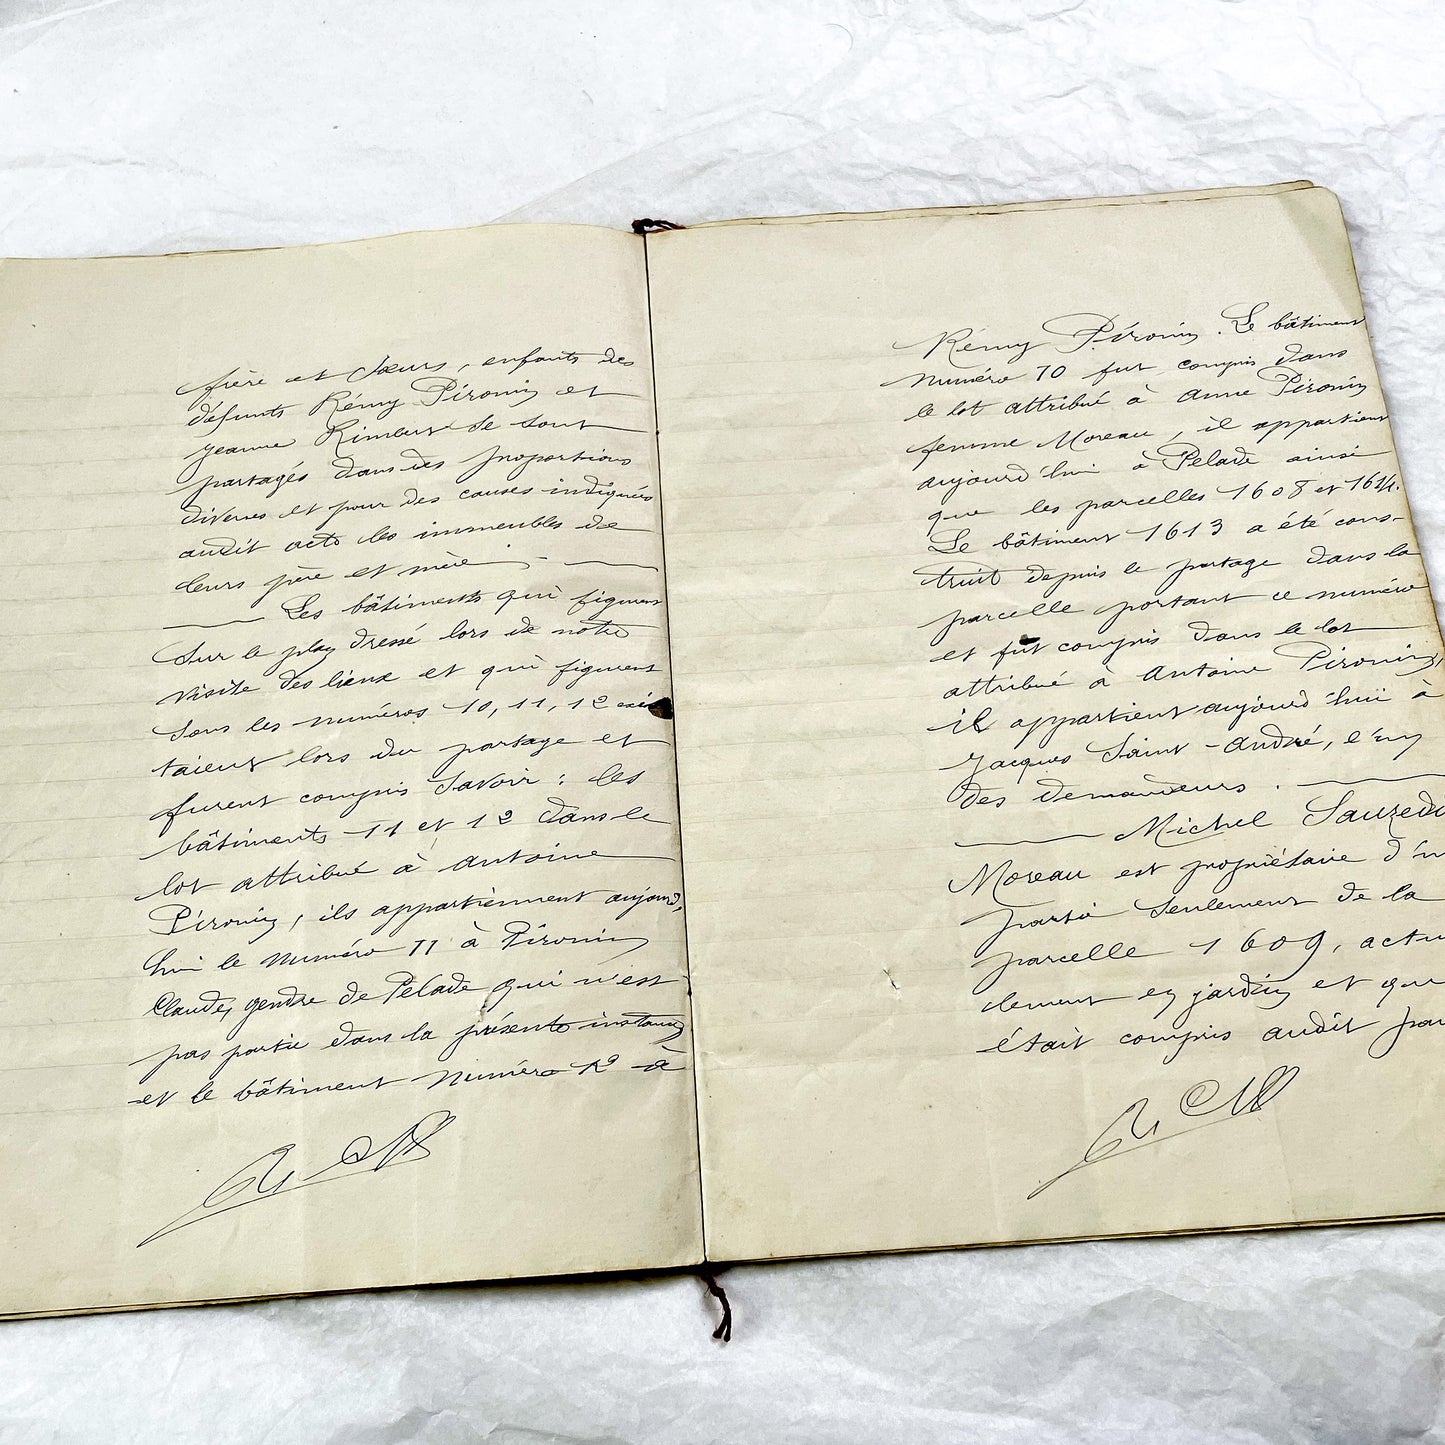 frère et sœurs, enfants des
défunts Rémy Pironin et
Jeanne Rimbert se sont
partagés dans des proportions
diverses et pour des causes indiquées
audit acte les immeubles de
leurs père et mère.
Les bâtiments qui figurent
sur le plan dressé lors de notre
visite des lieux et qui figurent
sous les numéros 10, 11, 12 exis
taient lors du partage et
furent compris savoir : les
bâtiments 11 et 12 dans le
lot attribué à Antoine
Pironin, ils appartiennent aujourd'
hui le numéro 11 à Pironin
Claude, gendre de Pelade qui n'est
pas partie dans la présente instance
et le bâtiment numéro 12 à
Rémy Pironin. Le bâtiment
numéro 10 fut compris dans
le lot attribué à Anne Pironin
femme Moreau, il appartient
aujourd'hui à Pelade ainsi
que les parcelles 1608 et 1614.
Le bâtiment 1613 a été cons-
truit depuis le partage dans la
parcelle portant ce numéro
et fût compris dans le lot
attribué à Antoine Pironin,
il appartient aujourd'hui à
Jacques Saint-André, l'un
des demandeurs.
Michel Sauzed
Moreau est propriétaire d'u
partie seulement de la
parcelle 1609, actu
lement en jardin et qui
était compris audit par